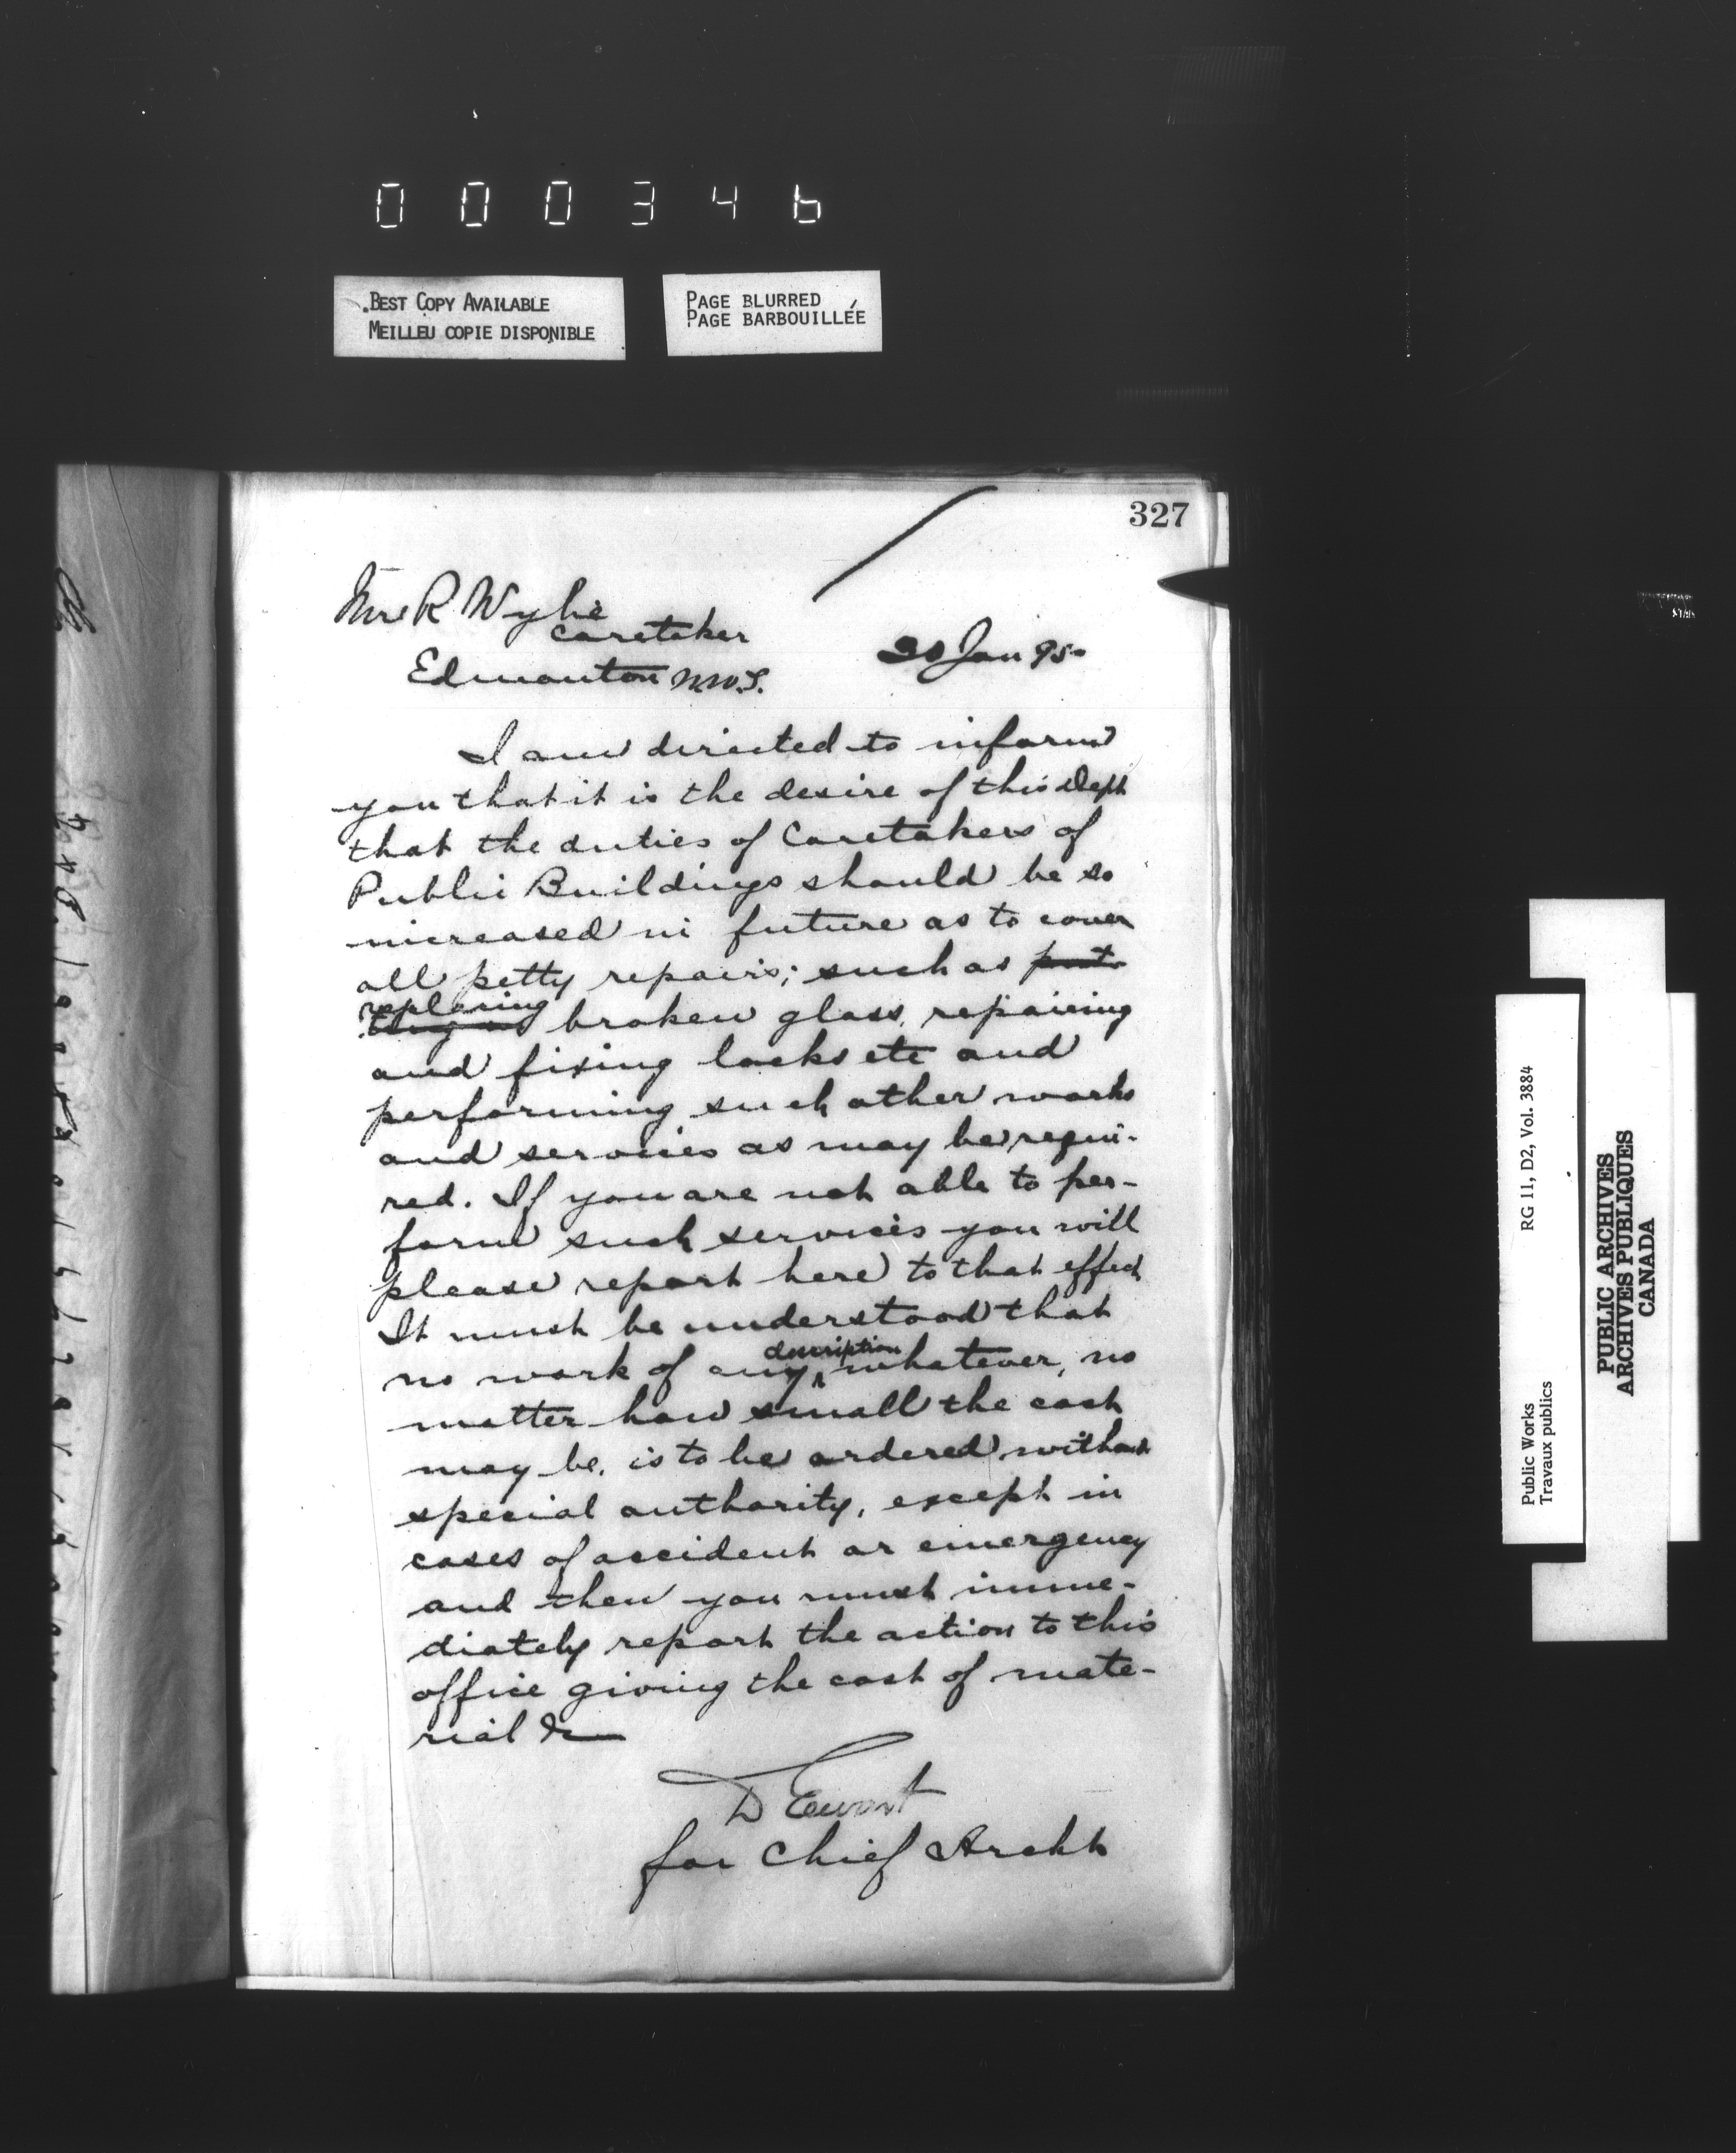 000346
.BEST COPY AVAILABLE
MEILLEU COPIE DISPONIBLE
PAGE BLURRED
PAGE BARBOUILLÉE
327
R Wylie
Caretaker
Edmonton N.W.T.
Jan 95
I am directed to inform
you that it is the desire of this Dept
that the duties of Caretakers of
Public Buildings should be so
increased in future as to cover
all petty repairs; such as put
replacing
ting in broken glass, repairing
and fixing locks etc and
performing such other works
and services as may be requi-
red. If you are not able to per-
form such services you will
please report here to that effect
It must be understood that
description
no work of any whatever, no
matter how small the cost
may be, is to be ordered without
special authority, except in
cases of accident or emergency
and then you must imme-
diately report the action to this
office giving the cost of mate-
rial &c
D Ewart
for Chief Archt
Public Works
Travaux publics
RG 11, D2, Vol. 3884
PUBLIC ARCHIVES
ARCHIVES PUBLIQUES
CANADA